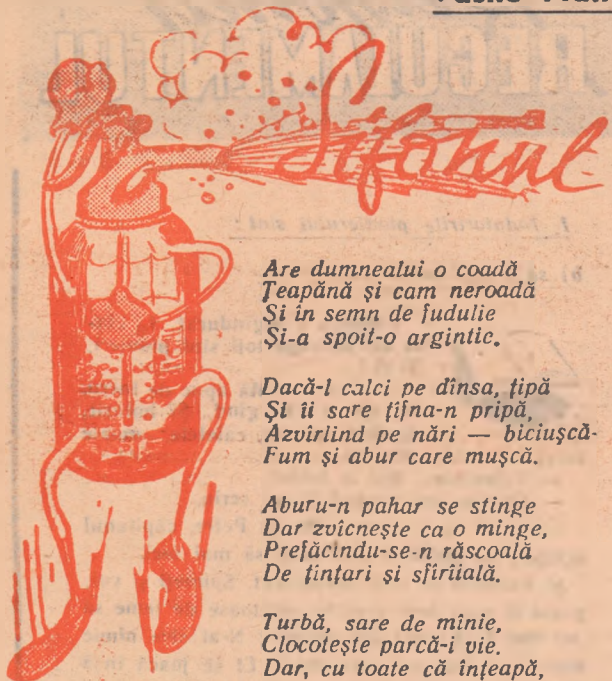 Sifonul
Are dumnealui o coadă
Țeapănă și cam neroadă
Și în semn de fudulie
Și-a spoit-o argintic.
Dacă-l calci pe dînsa, țipă
Și îi sare țifna-n pripă,
Azvîrlind pe nări — biciușcă-
Fum și abur care mușcă.
Aburu-n pahar se stinge
Dar zvîcnește ca o minge,
Prefăcîndu-se-n răscoală
De țințari și sfîrîială.
Turbă, sare de mînie,
Clocotește parcă-i vie.
Dar, cu toate că înțeapă,